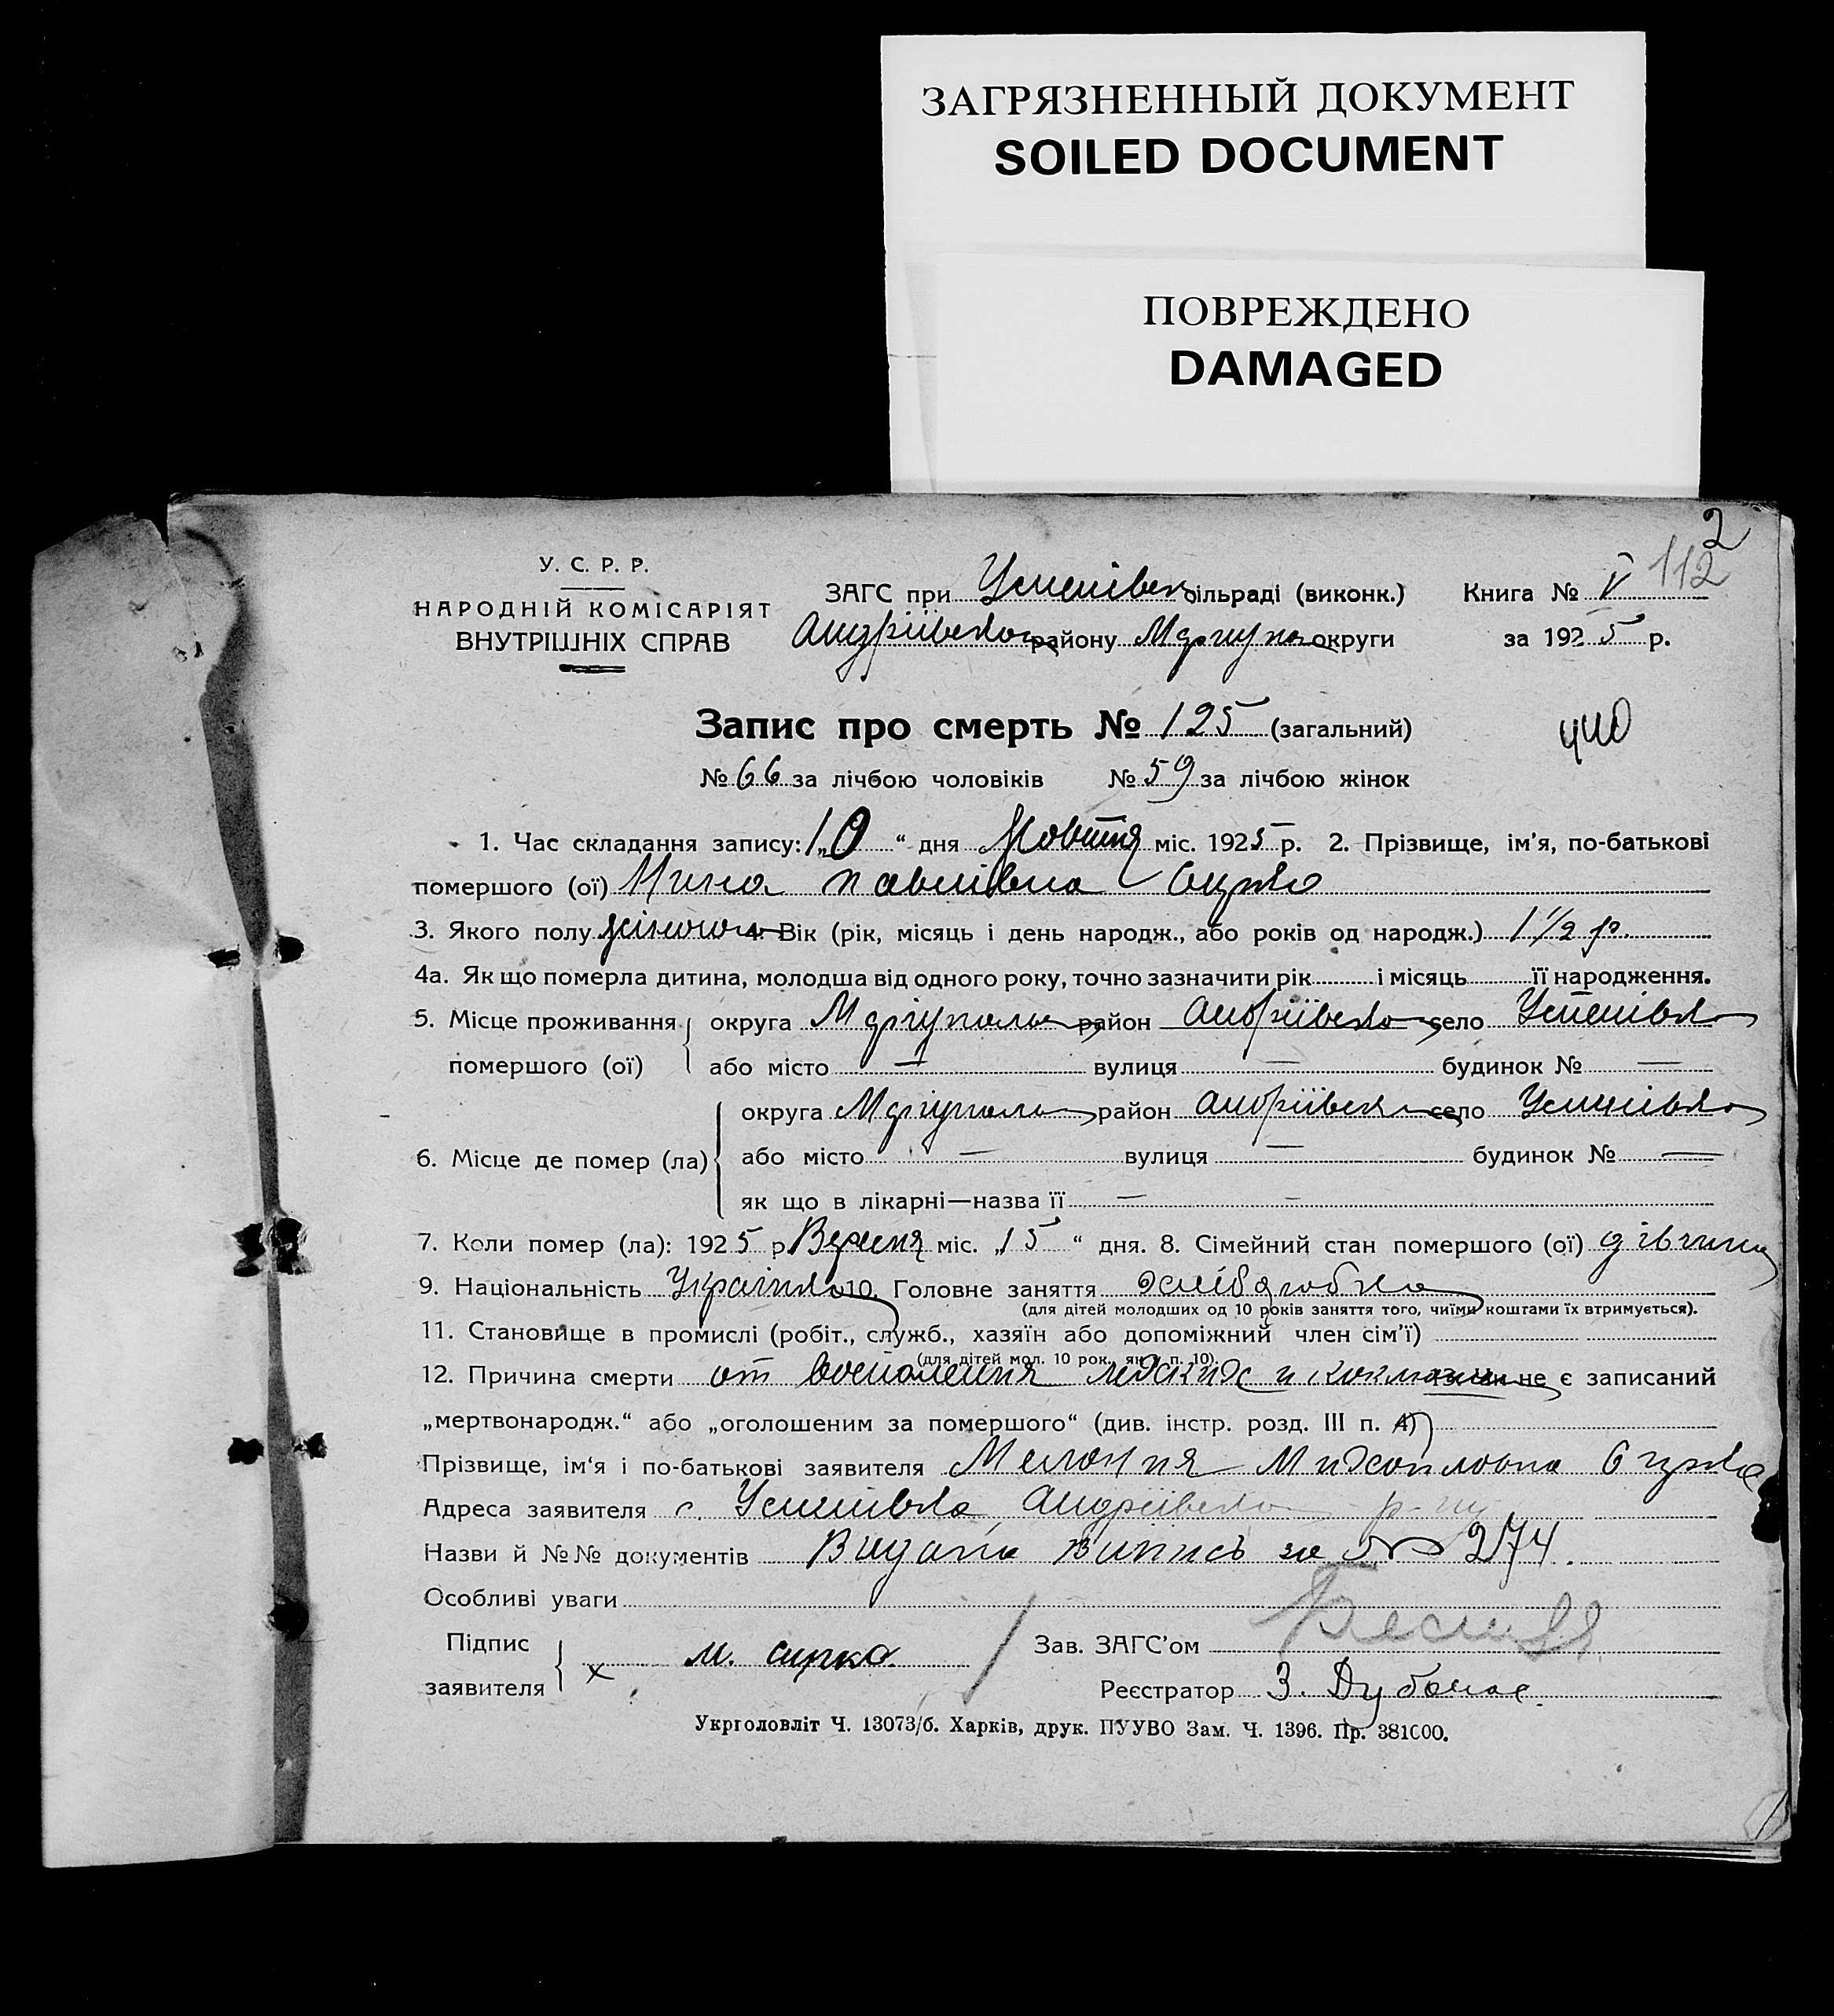 ЗАГРЯЗНЕННЫЙ ДОКУМЕНТ
SOILED DOCUMENT
ПОВРЕЖДЕНО
DAMAGED
2
112
У. С. Р. Р.
НАРОДНІЙ КОМІСАРІЯТ
ВНУТРІШНІХ СПРАВ
ЗАГС при Успенівск сільраді (виконк.) Книга № V
Андріївсько району Маріуп округи за 1925 р.
Запис про смерть № 125 (загальний)
№ 66 за лічбою чоловіків № 59 за лічбою жінок
1. Час складання запису: „10“ дня Жовтня міс. 1925 р. 2. Прізвище, ім'я, по-батькові
помершого (ої) Нина Павлівна Сирко
3. Якого полу жіночого 4. Вік (рік, місяць і день народж., або років од народж.) 1 1/2 р.
4а. Як що померла дитина, молодша від одного року, точно зазначити рік і місяць її народження.
5. Місце проживання помершого (ої) округа Маріупольск район Андріївсько село Успенівка
або місто — вулиця — будинок № —
6. Місце де помер (ла) округа Маріупольск район Андріївсько село Успенівка
або місто — вулиця — будинок № —
як що в лікарні—назва її — —
7. Коли помер (ла): 1925 р. Вересня міс. „15“ дня. 8. Сімейний стан помершого (ої) дівчина
9. Національність Українка 10. Головне заняття хліборобка
(для дітей молодших од 10 років заняття того, чиїми коштами їх втримується).
11. Становище в промислі (робіт., служб., хазяїн або допоміжний член сім'ї)
(для дітей мол. 10 рок., як і п. 10).
12. Причина смерти от воспаления лехких и не є записаний
„мертвонародж.“ або „оголошеним за помершого“ (див. інстр. розд. III п. 4)
Прізвище, ім'я і по-батькові заявителя Мелания Михайловна Сирко
Адреса заявителя с. Успенівка Андріївсько р-ну
Назви й №№ документів Видана випись за № 2174.
Особливі уваги
Підпис заявителя х М. Сирка Зав. ЗАГС'ом
Реєстратор З.
Укрголовліт Ч. 13073/б. Харків, друк. ПУУВО Зам. Ч. 1396. Пр. 381000.